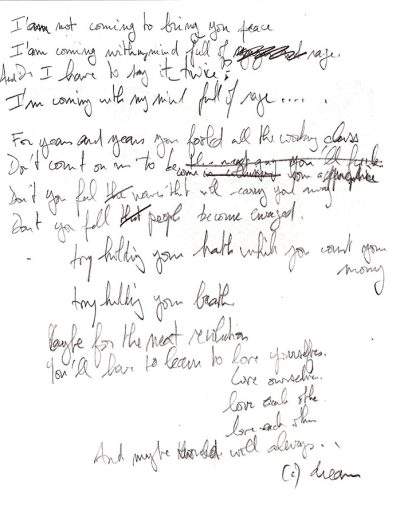 I'am not coming to bring you peace
I'am coming with my mind full of rage.
And Do I have to say it twice;
I'm coming with my mind full of rage .....
For years and years you fooled all the working class
Don't count on me to become your
Don't you feel the wave that will carry you away
Don't you fell that people become enraged.
try holding your breath while you count your
money
try holding your breath
Maybe for the next revolution
You'll have to learn to love yourselves.
love ourselves.
love each other
love each other
And maybe will always...
(c) dream